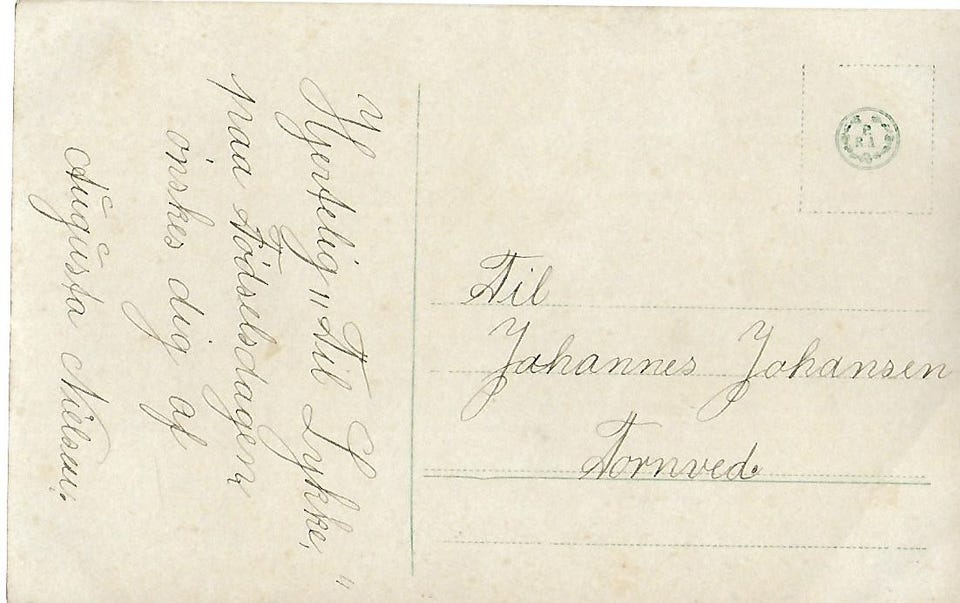 Hjertelig „Til Lykke,"
paa Födselsdagen
önskes dig af
Augusta Nielsen.
Til
Johannes Johansen
Tornved.